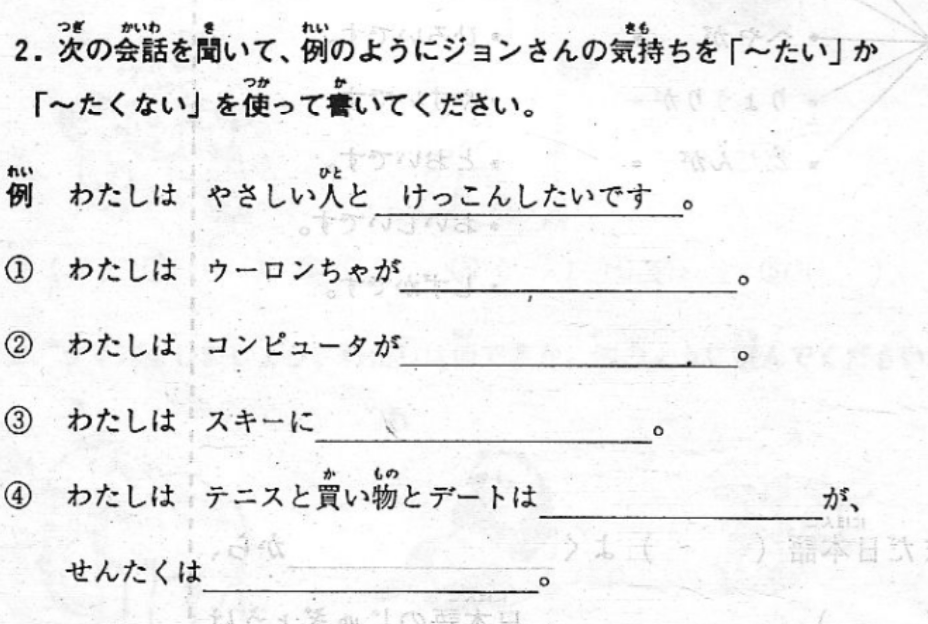 2. 次の会話を聞いて、例のようにジョンさんの気持ちを「～たい」か
「～たくない」を使って書いてください。
例 わたしは やさしい人と けっこんしたいです 。
① わたしは ウーロンちゃが 。
② わたしは コンピュータが 。
③ わたしは スキーに 。
④ わたしは テニスと買い物とデートは が、
せんたくは 。